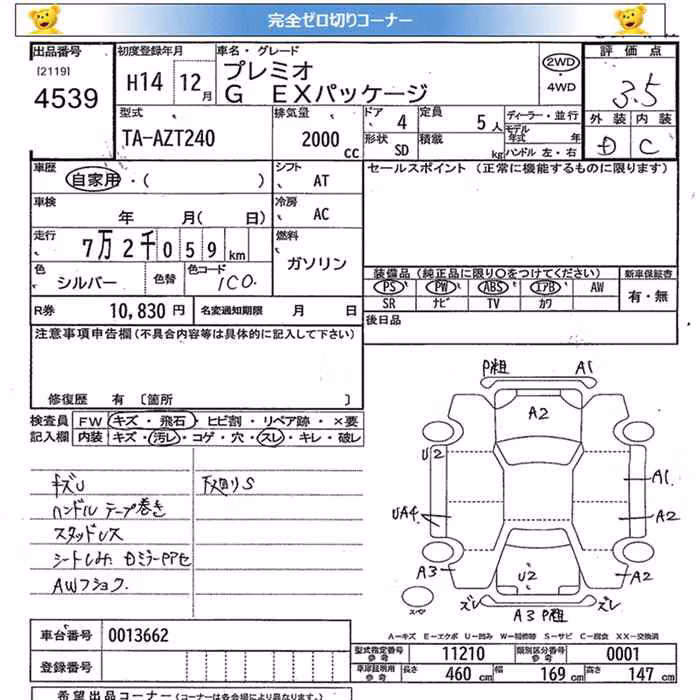 完全ゼロ切りコーナー
出品番号
[2119]
4539
初度登録年月
H14 12月
車名・グレード
プレミオ
G EXパッケージ
2WD
・
4WD
評価点
3.5
外装 内装
D C
型式
TA-AZT240
排気量
2000 cc
ドア 4
形状 SD
定員 5人
積載 kg
ディーラー・並行
モデル年式 年
ハンドル 左・右
車歴
自家用・( )
シフト
AT
セールスポイント (正常に機能するものに限ります)
車検
年 月( 日)
冷房
AC
走行
7万2千059km
燃料
ガソリン
色
シルバー
色替
色コード
1C0.
装備品(純正品に限り○をつけてください)
新車保証書
PS PW ABS エアB AW
SR ナビ TV カワ
有・無
R券 10,830 円
名変通知期限 月 日
後日品
注意事項申告欄(不具合内容等は具体的に記入して下さい)
修復歴 有 〔箇所 〕
検査員
記入欄
FW キズ・飛石・ヒビ割・リペア跡・×要
内装 キズ・汚レ・コゲ・穴・スレ・キレ・破レ
キズU
下廻りS
ハンドル テープ巻き
スタッドレス
シートしみ
AWフショク.
P粗 A1
A2
U2
A1
UA4
A2
A3
U2
A2
スペヤ
ズレ
A3 P粗
ズレ
A−キズ E−エクボ U−凹み W−補修跡 S−サビ C−腐食 XX−交換済
車台番号 0013662
登録番号
型式指定番号
参考
11210
類別区分番号
参考
0001
車庫証明用
参考
長さ 460 cm
幅 169 cm
高さ 147 cm
希望出品コーナー(コーナーは各会場により異なります。)